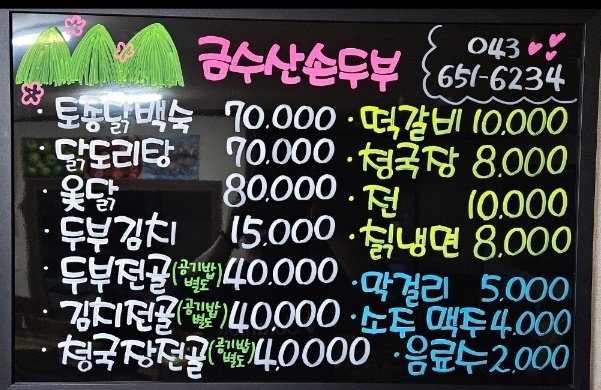 금수산손두부
043
651-6234
· 토종닭백숙 70.000
· 닭도리탕 70.000
· 옻닭 80.000
· 두부김치 15.000
· 두부전골(공기밥 별도) 40.000
· 김치전골(공기밥 별도) 40,000
· 청국장전골(공기밥 별도) 40000
· 떡갈비 10.000
· 청국장 8.000
· 전 10.000
· 칡냉면 8,000
· 막걸리 5.000
· 소주 맥주 4.000
· 음료수 2,000